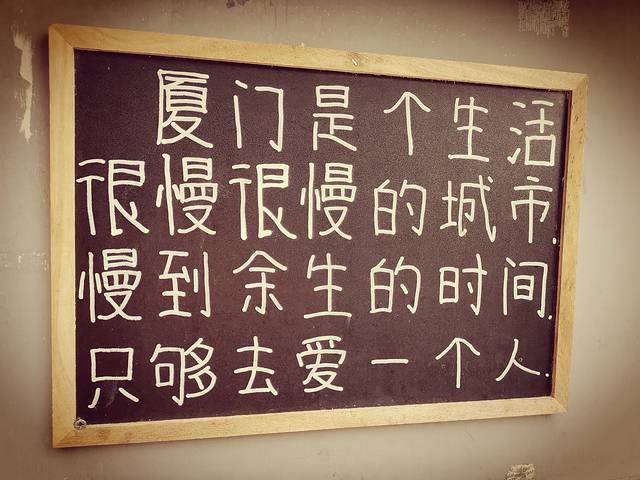 厦门是个生活
很慢很慢的城市.
慢到余生的时间.
只够去爱一个人.